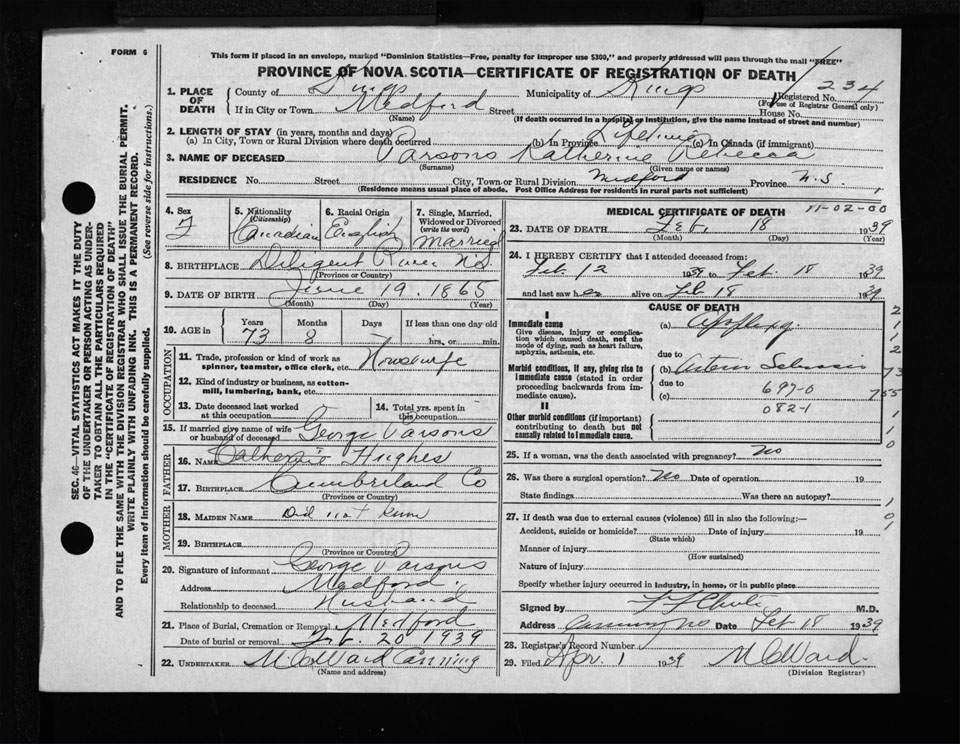 FORM 6
This form if placed in an envelope, marked "Dominion Statistics—Free, penalty for improper use $300," and properly addressed will pass through the mail "FREE"
PROVINCE OF NOVA SCOTIA—CERTIFICATE OF REGISTRATION OF DEATH
1. PLACE OF DEATH County of Kings Municipality of Kings Registered No. 234
(For use of Registrar General only)
If in City or Town Medford Street House No.
(Name) (If death occurred in a hospital or institution, give the name instead of street and number)
2. LENGTH OF STAY (in years, months and days)
(a) In City, Town or Rural Division where death occurred (b) In Province Lifetime (c) In Canada (if immigrant)
3. NAME OF DECEASED Parsons Katherine Rebecca
(Surname) (Given name or names)
RESIDENCE No. Street City, Town or Rural Division Medford Province N.S.
(Residence means usual place of abode. Post Office Address for residents in rural parts not sufficient)
4. Sex F
5. Nationality (Citizenship) Canadian
6. Racial Origin English
7. Single, Married, Widowed or Divorced (write the word) Married
8. BIRTHPLACE Diligent River NS
(Province or Country)
9. DATE OF BIRTH June 19. 1865
(Month) (Day) (Year)
10. AGE in Years Months Days If less than one day
73 8 hrs., or min.
OCCUPATION
11. Trade, profession or kind of work as spinner, teamster, office clerk, etc. Housewife
12. Kind of industry or business, as cotton-mill, lumbering, bank, etc.
13. Date deceased last worked at this occupation 14. Total yrs. spent in this occupation
15. If married give name of wife or husband of deceased George Parsons
FATHER
16. NAME Catherine Hughes
17. BIRTHPLACE Cumberland Co
(Province or Country)
MOTHER
18. MAIDEN NAME Did not know
19. BIRTHPLACE
(Province or Country)
20. Signature of informant George Parsons
Address Medford.
Relationship to deceased Husband
21. Place of Burial, Cremation or Removal Medford
Date of burial or removal Feb. 20 1939
22. UNDERTAKER M C Ward Canning
(Name and address)
MEDICAL CERTIFICATE OF DEATH 11-02-00
23. DATE OF DEATH Feb, 18 1939
(Month) (Day) (Year)
24. I HEREBY CERTIFY that I attended deceased from:
Feb 12 1939 to Feb. 18 1939
and last saw her alive on Feb 18 1939
CAUSE OF DEATH
I
Immediate cause
Give disease, injury or complication which caused death, not the mode of dying, such as heart failure, asphyxia, asthenia, etc.
(a) Apoplexy.
due to
Morbid conditions, if any, giving rise to immediate cause (stated in order proceeding backwards from immediate cause).
(b) Arterio Sclerosis
due to
(c) 697-0
082-1
II
Other morbid conditions (if important) contributing to death but not causally related to immediate cause.
25. If a woman, was the death associated with pregnancy? No
26. Was there a surgical operation? No Date of operation 19
State findings Was there an autopsy?
27. If death was due to external causes (violence) fill in also the following:—
Accident, suicide or homicide? Date of injury 19
(State which)
Manner of injury
(How sustained)
Nature of injury
Specify whether injury occurred in industry, in home, or in public place
Signed by M.D.
Address Canning NS Date Feb 18 1939
28. Registrar's Record Number
29. Filed Apr. 1 1939 M C Ward.
(Division Registrar)
SEC. 46—VITAL STATISTICS ACT MAKES IT THE DUTY
OF THE UNDERTAKER OR PERSON ACTING AS UNDER-
TAKER TO OBTAIN ALL THE PARTICULARS REQUIRED
IN THE "CERTIFICATE OF REGISTRATION OF DEATH"
AND TO FILE THE SAME WITH THE DIVISION REGISTRAR WHO SHALL ISSUE THE BURIAL PERMIT.
WRITE PLAINLY WITH UNFADING INK. THIS IS A PERMANENT RECORD.
Every item of information should be carefully supplied. (See reverse side for instructions.)